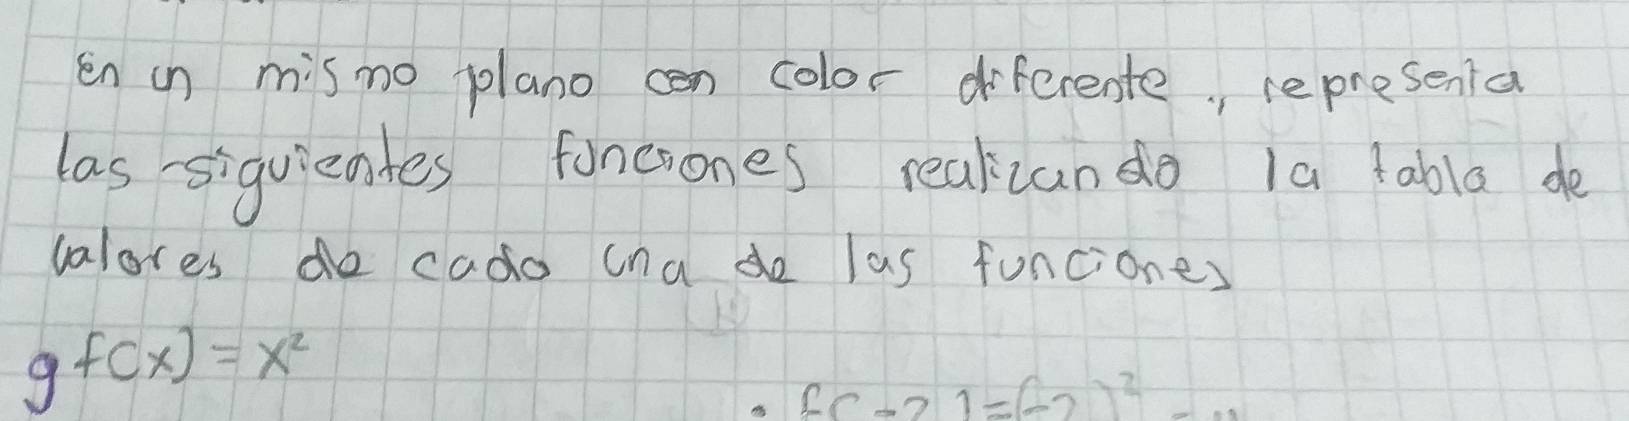 en un mismo plano con color diferente, representa
las siguientes funciones realizando la tabla de
valores de cada una de las funciones
g f(x) = x²
• f(-2) = (-2)² =